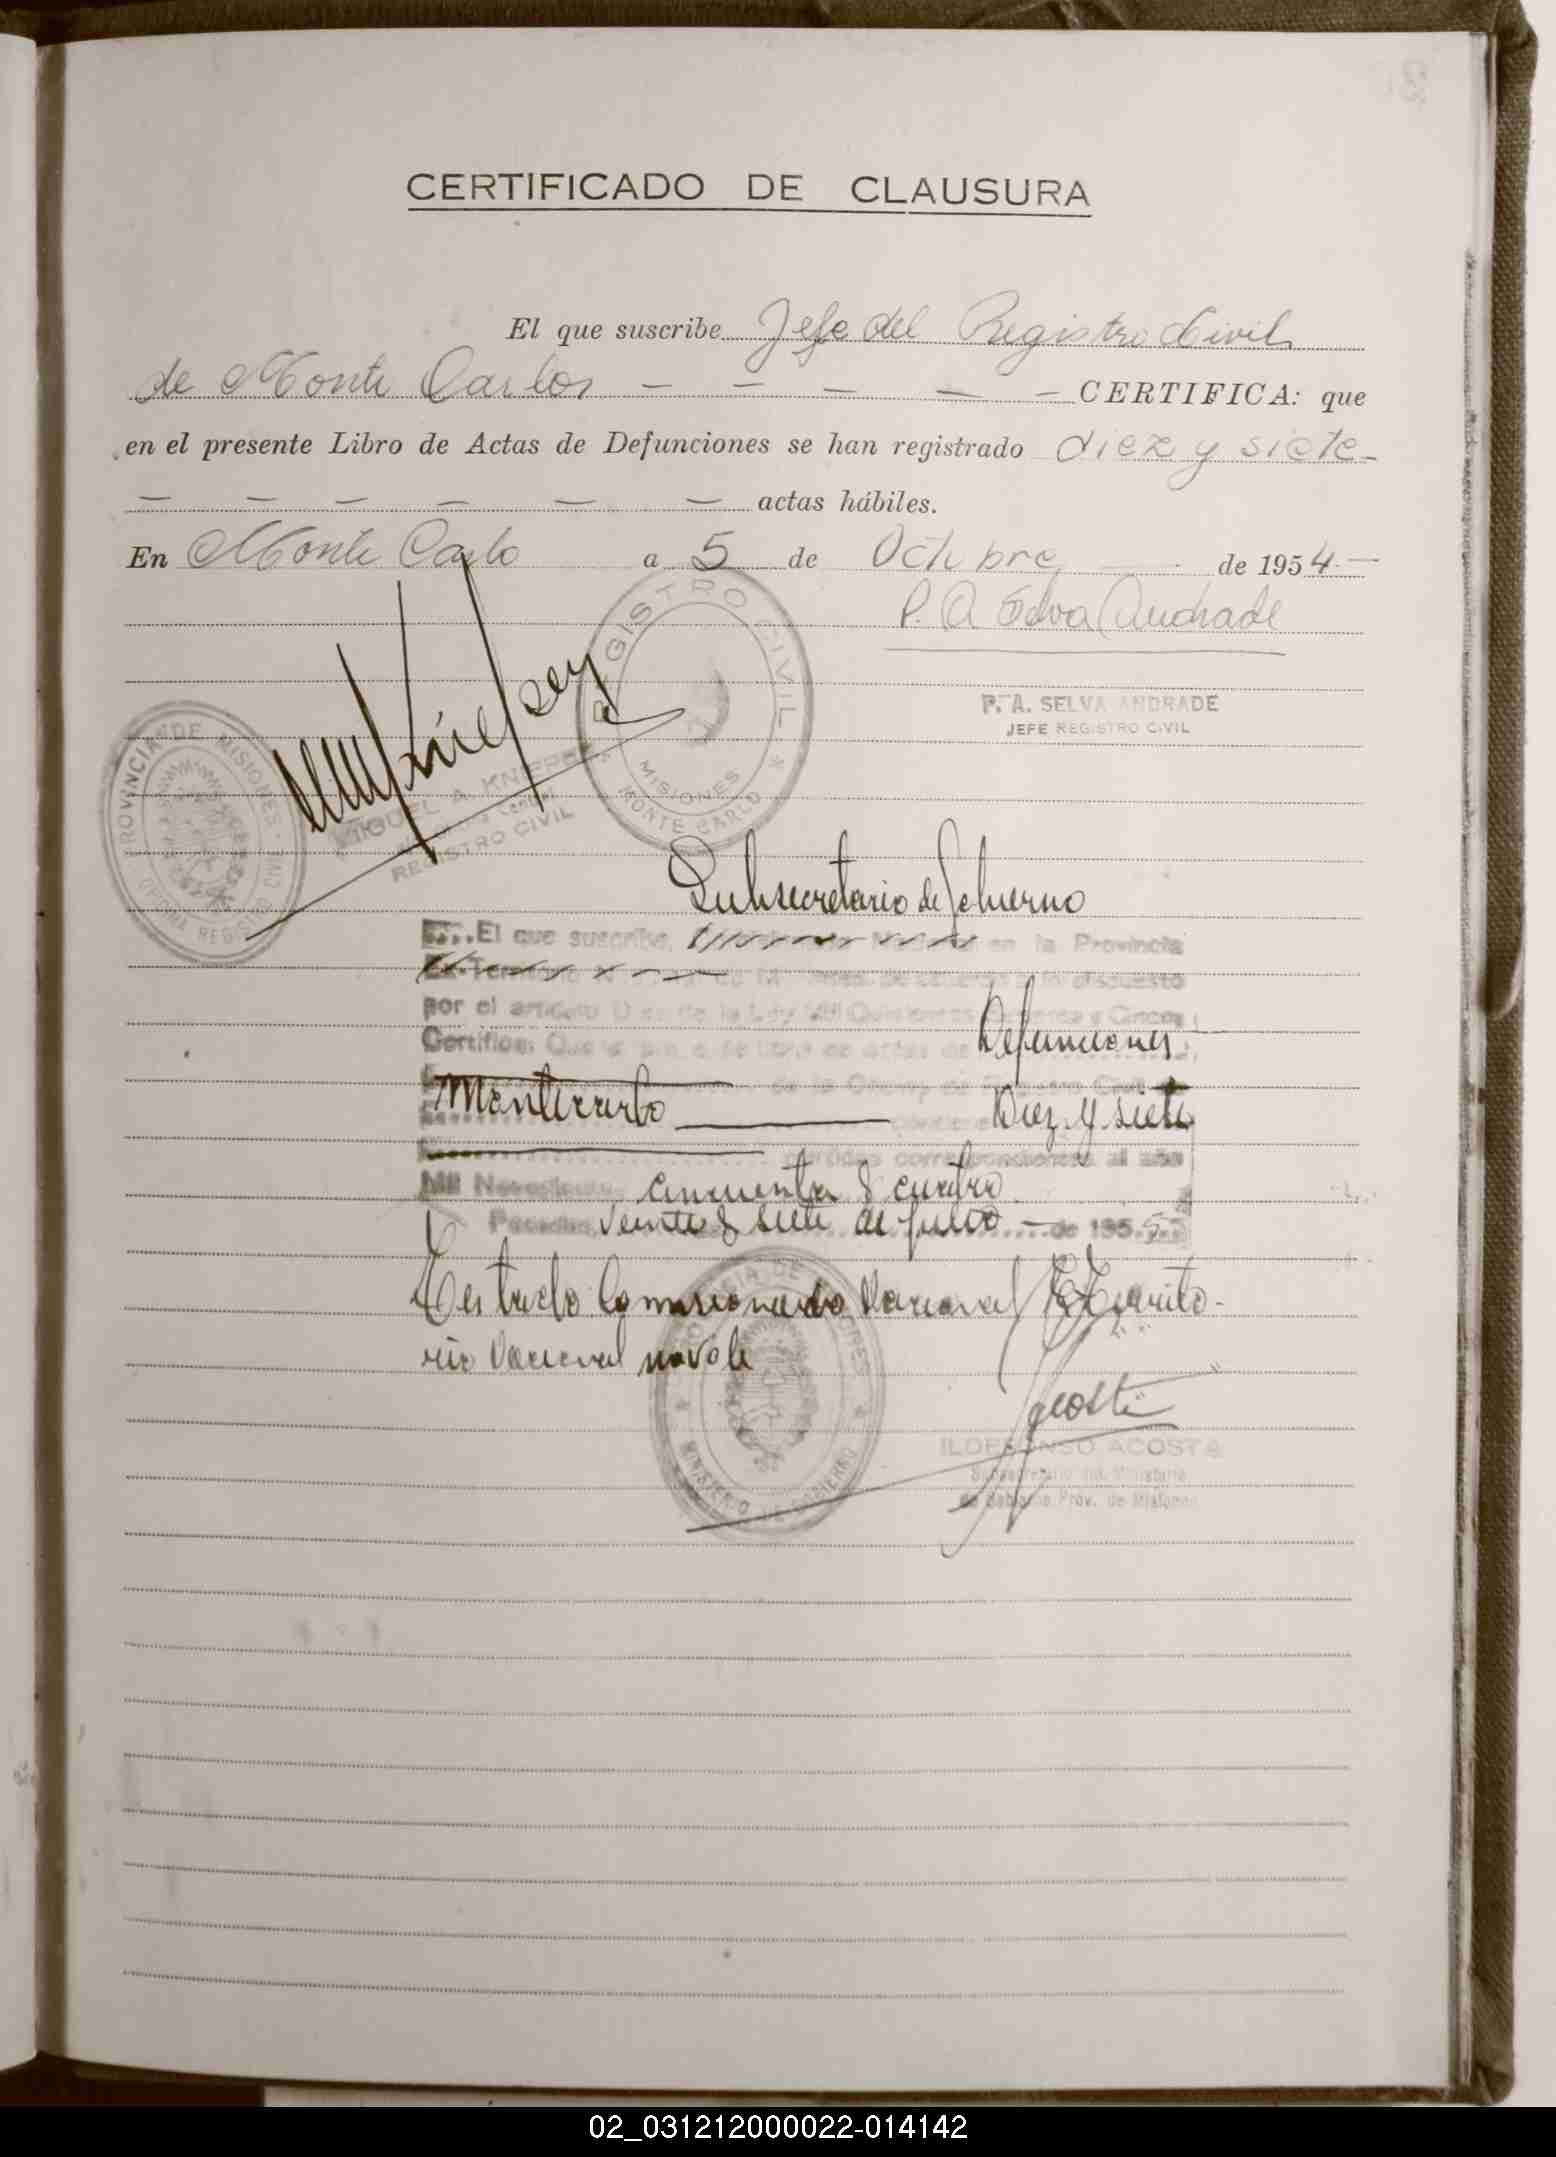 CERTIFICADO DE CLAUSURA
El que suscribe Jefe del Registro Civil
de Monte Carlos — — — — — CERTIFICA: que
en el presente Libro de Actas de Defunciones se han registrado diez y siete -
— — — — — — actas hábiles.
En Monte Carlo a 5 de Octubre de 1954.—
P. A Selva Andrade
P. A. SELVA ANDRADE
JEFE REGISTRO CIVIL
REGISTRO CIVIL
MISIONES
MONTE CARLO
PROVINCIA DE MISIONES
MIGUEL A. KNIEPE
REGISTRO CIVIL
Subsecretario de Gobierno
El que suscribe, en la Provincia
de acuerdo a lo dispuesto
por el artículo de la Ley Mil Quinientos Sesenta y Cinco,
Certifica: Que el libro de actas de Defunciones
de la Oficina de Registro Civil
Montecarlo Diez y siete
partidas correspondientes al año
Mil Novecientos cincuenta y cuatro
Posadas, veinte y siete de Julio — de 1955
Testado Comisionado Nacional Ex Territo-
rio Nacional no vale
PROVINCIA DE MISIONES
MINISTERIO DE GOBIERNO
Acosta
ILDEFONSO ACOSTA
Subsecretario del Ministerio
de Gobierno Prov. de Misiones
02_031212000022-014142